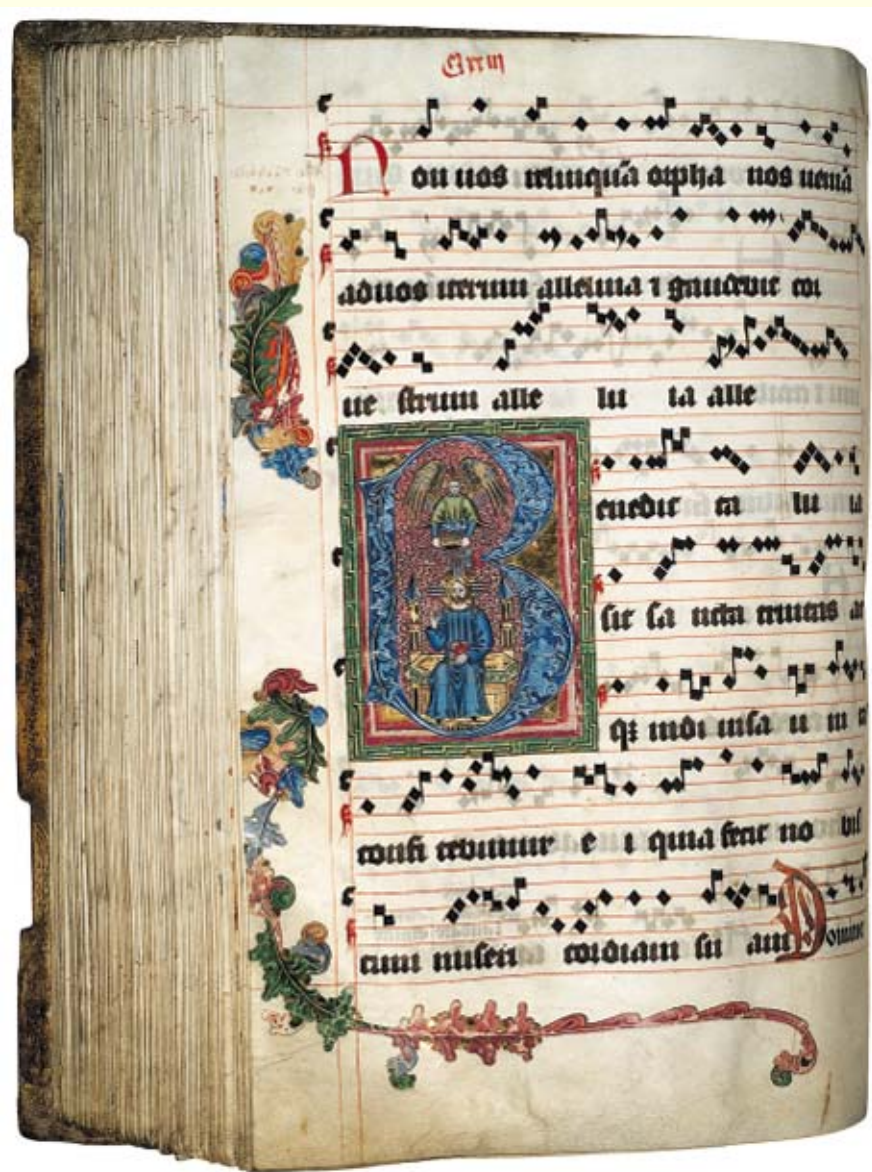 Non uos relinquā orpha nos ueniā
aduos iterum alleluia ⁊ gaudebit cor
ue strum alle lu ia alle
Benedic ta lu ia
sit sa ncta trinitas at
qꝫ indi uisa u ni
confi tebimur e i quia fecit no bis
cum miseri cordiam su am Domine